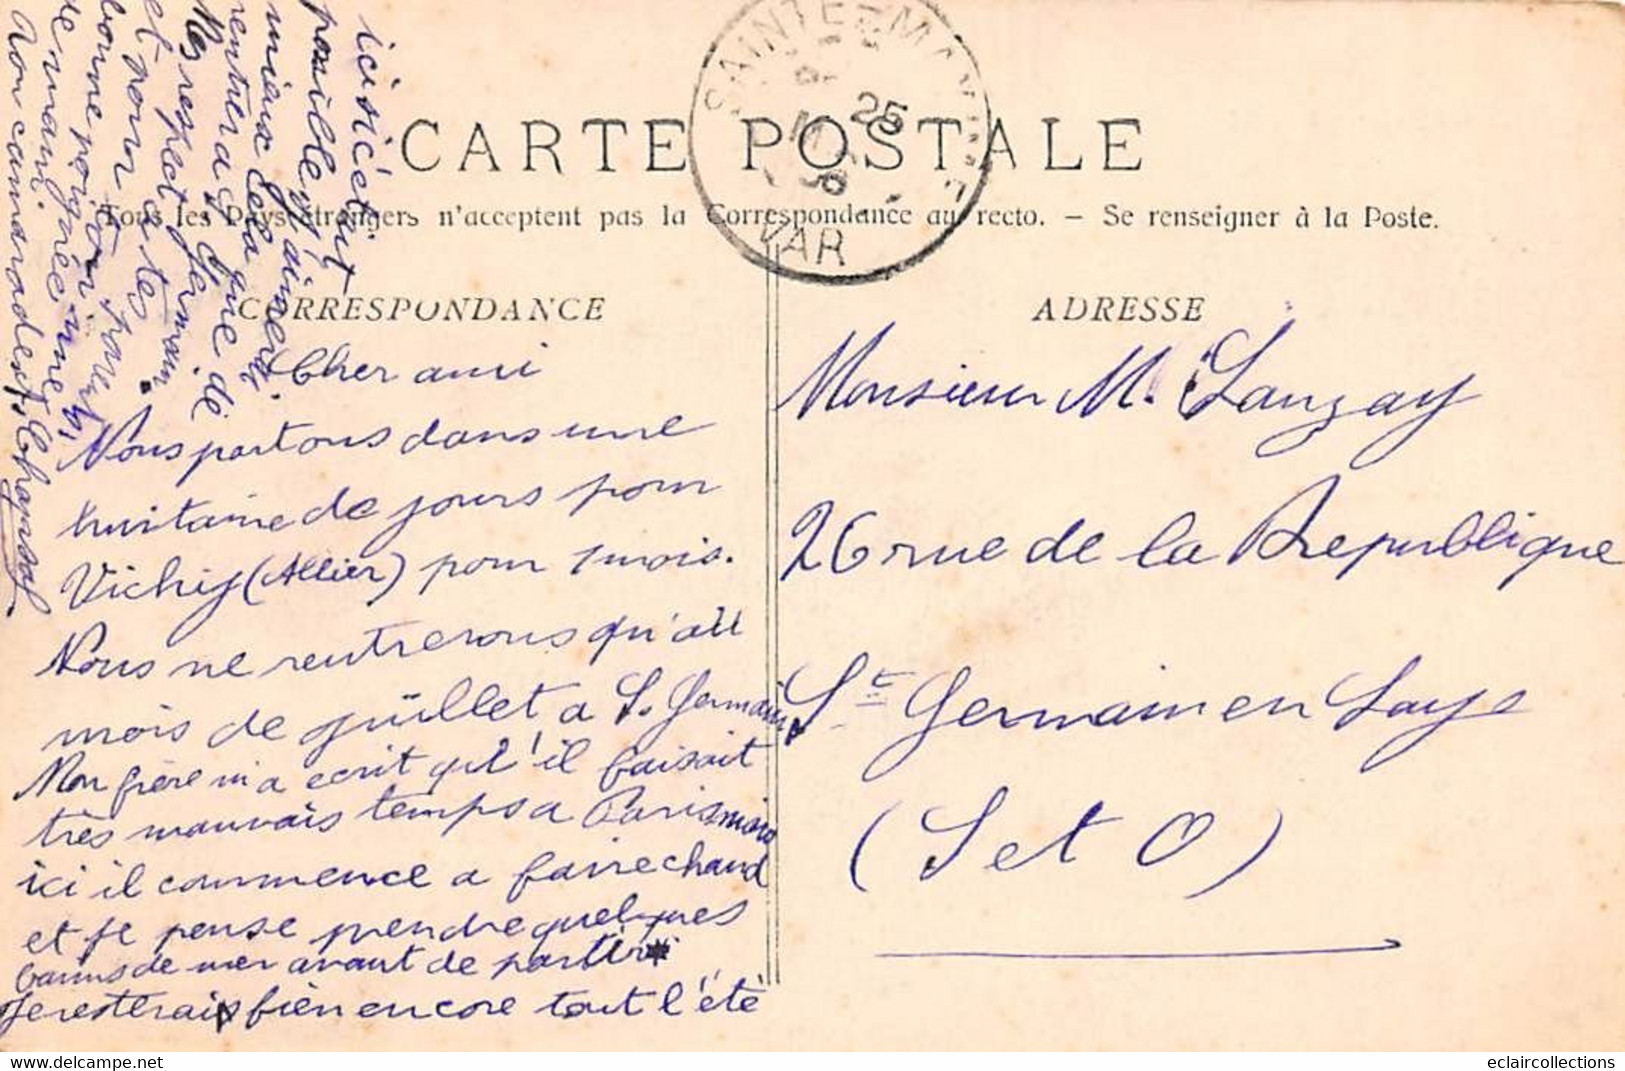 CARTE POSTALE
Tous les Pays étrangers n'acceptent pas la Correspondance au recto. – Se renseigner à la Poste.
SAINTE-MAXIME
25
VAR
CORRESPONDANCE
Cher ami
Nous partons dans une
huitaine de jours pour
Vichy (Allier) pour 1 mois.
Nous ne rentrerons qu'au
mois de juillet a S. Germain.
Mon frère m'a ecrit qu'il faisait
très mauvais temps a Paris mais
ici il commence a faire chaud
et je pense prendre quelques
bains de mer avant de partir
Je resterais bien encore tout l'été
ici si c'était
possible j'aimerai
mieux cela que de
rentrer a S. Germain.
Mes respect
et pour a tes
bonne poignée
de main
Ton camarade Chapsal
ADRESSE
Monsieur M. Lanzay
26 rue de la Republique
St Germain en Laye
(S et O)
eclaircollections